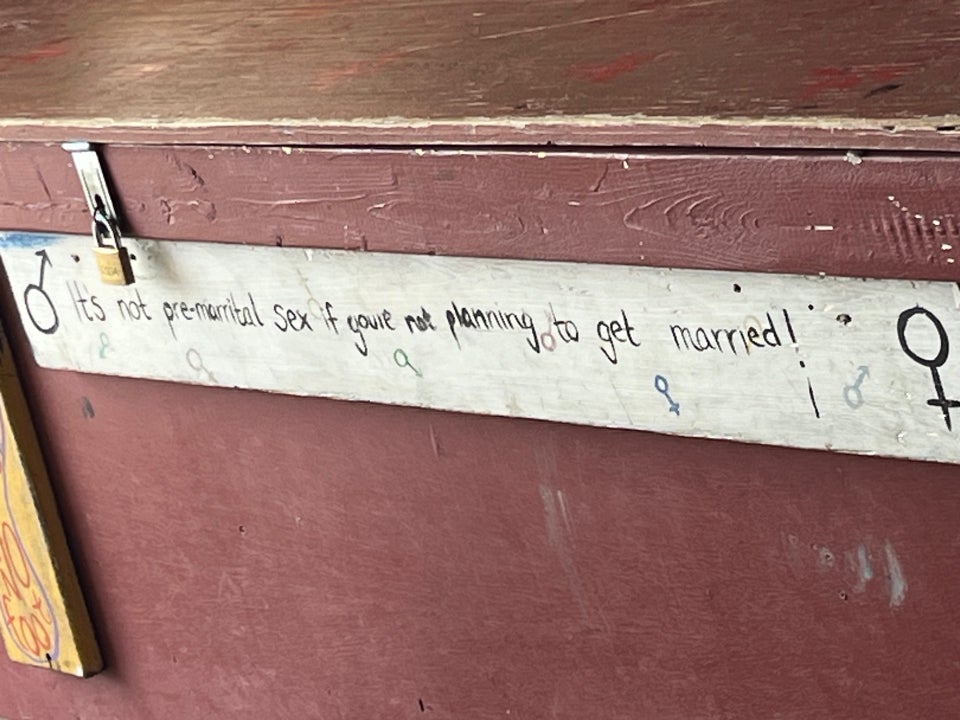 It's not pre-marrital sex if you're not planning to get married!